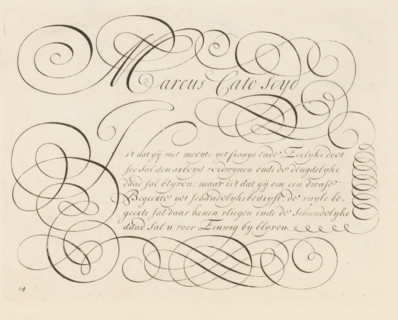 Marcus Cato Seyd
Ist dat gij met moeyte yet fraays ende Eerlijks doet
soo sal den arbeyt verdwynen ende de deugdelijke
daad sal blyven: maar ist dat gij om een dwase
Begeerte yet schandelijks bedryft de vuyle be-
geerte sal daar henen vliegen ende de schandelijke
daad sal u voor Eeuwig by blyven.
14